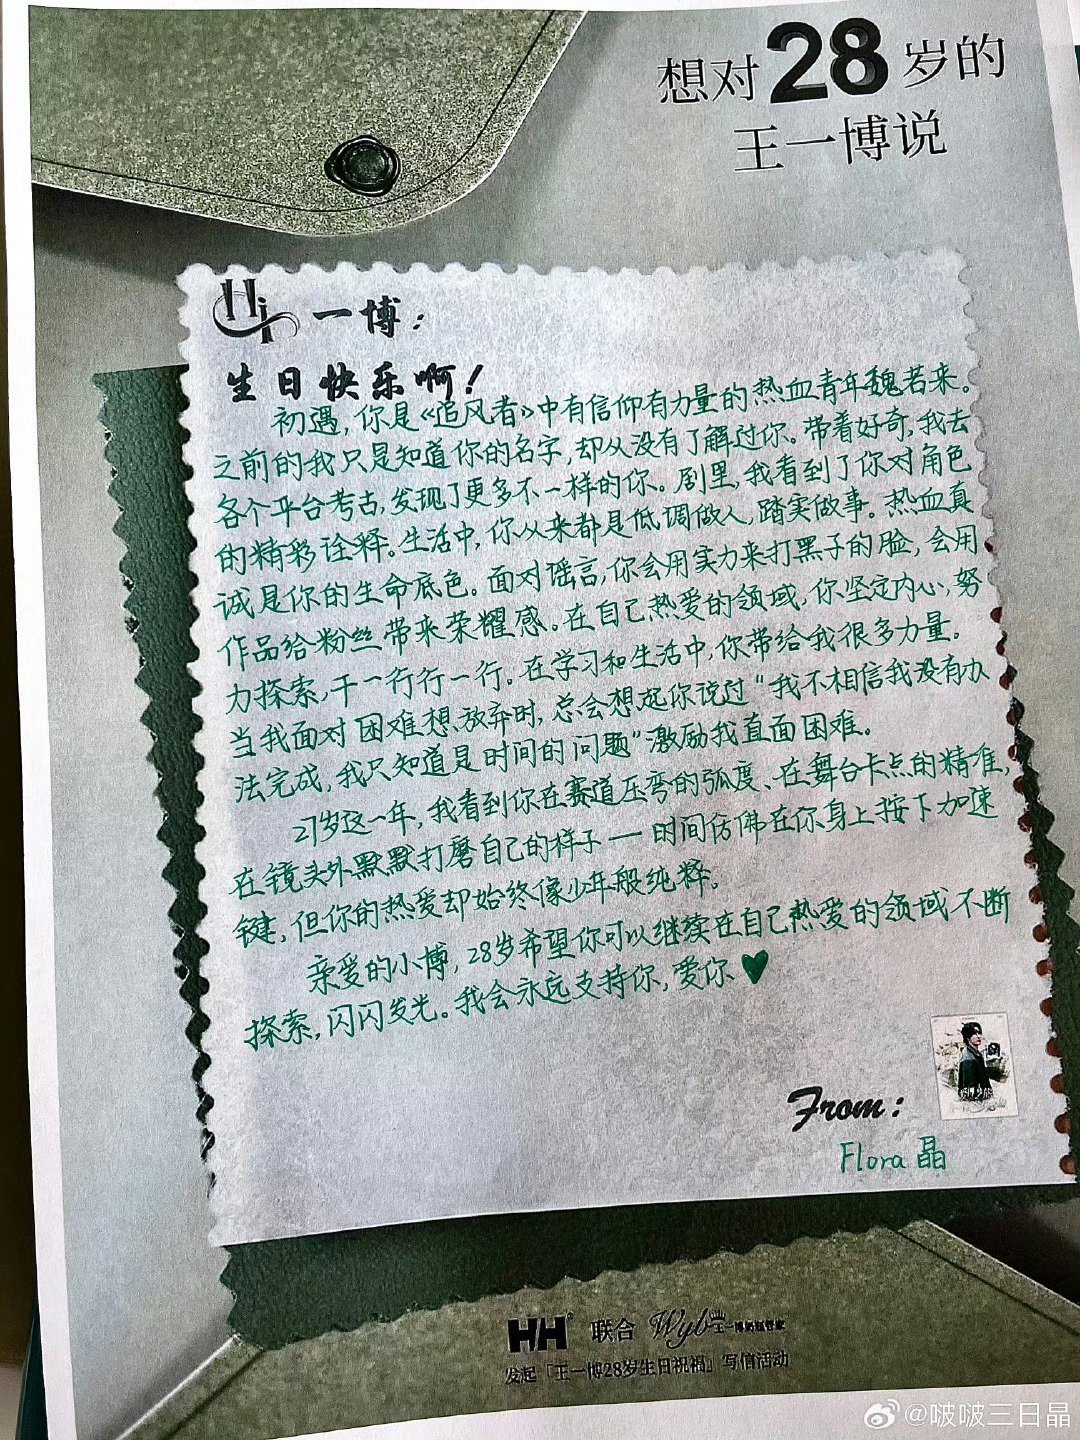 想对28岁的
王一博说
Hi 一博：
生日快乐啊！
初遇，你是《追风者》中有信仰有力量的热血青年魏若来。
之前的我只是知道你的名字，却从没有了解过你。带着好奇，我去
各个平台考古，发现了更多不一样的你。剧里，我看到了你对角色
的精彩诠释。生活中，你从来都是低调做人，踏实做事。热血真
诚是你的生命底色。面对谣言，你会用实力来打黑子的脸，会用
作品给粉丝带来荣耀感。在自己热爱的领域，你坚定内心，努
力探索，干一行行一行。在学习和生活中，你带给我很多力量。
当我面对困难想放弃时，总会想起你说过“我不相信我没有办
法完成，我只知道是时间的问题”激励我直面困难。
27岁这一年，我看到你在赛道压弯的弧度、在舞台卡点的精准，
在镜头外默默打磨自己的样子—时间仿佛在你身上按下加速
键，但你的热爱却始终像少年般纯粹。
亲爱的小博，28岁希望你可以继续在自己热爱的领域不断
探索，闪闪发光。我会永远支持你，爱你♥
From：
Flora 晶
HH 联合 Wyb
发起「王一博28岁生日祝福」写信活动
@啵啵三日晶